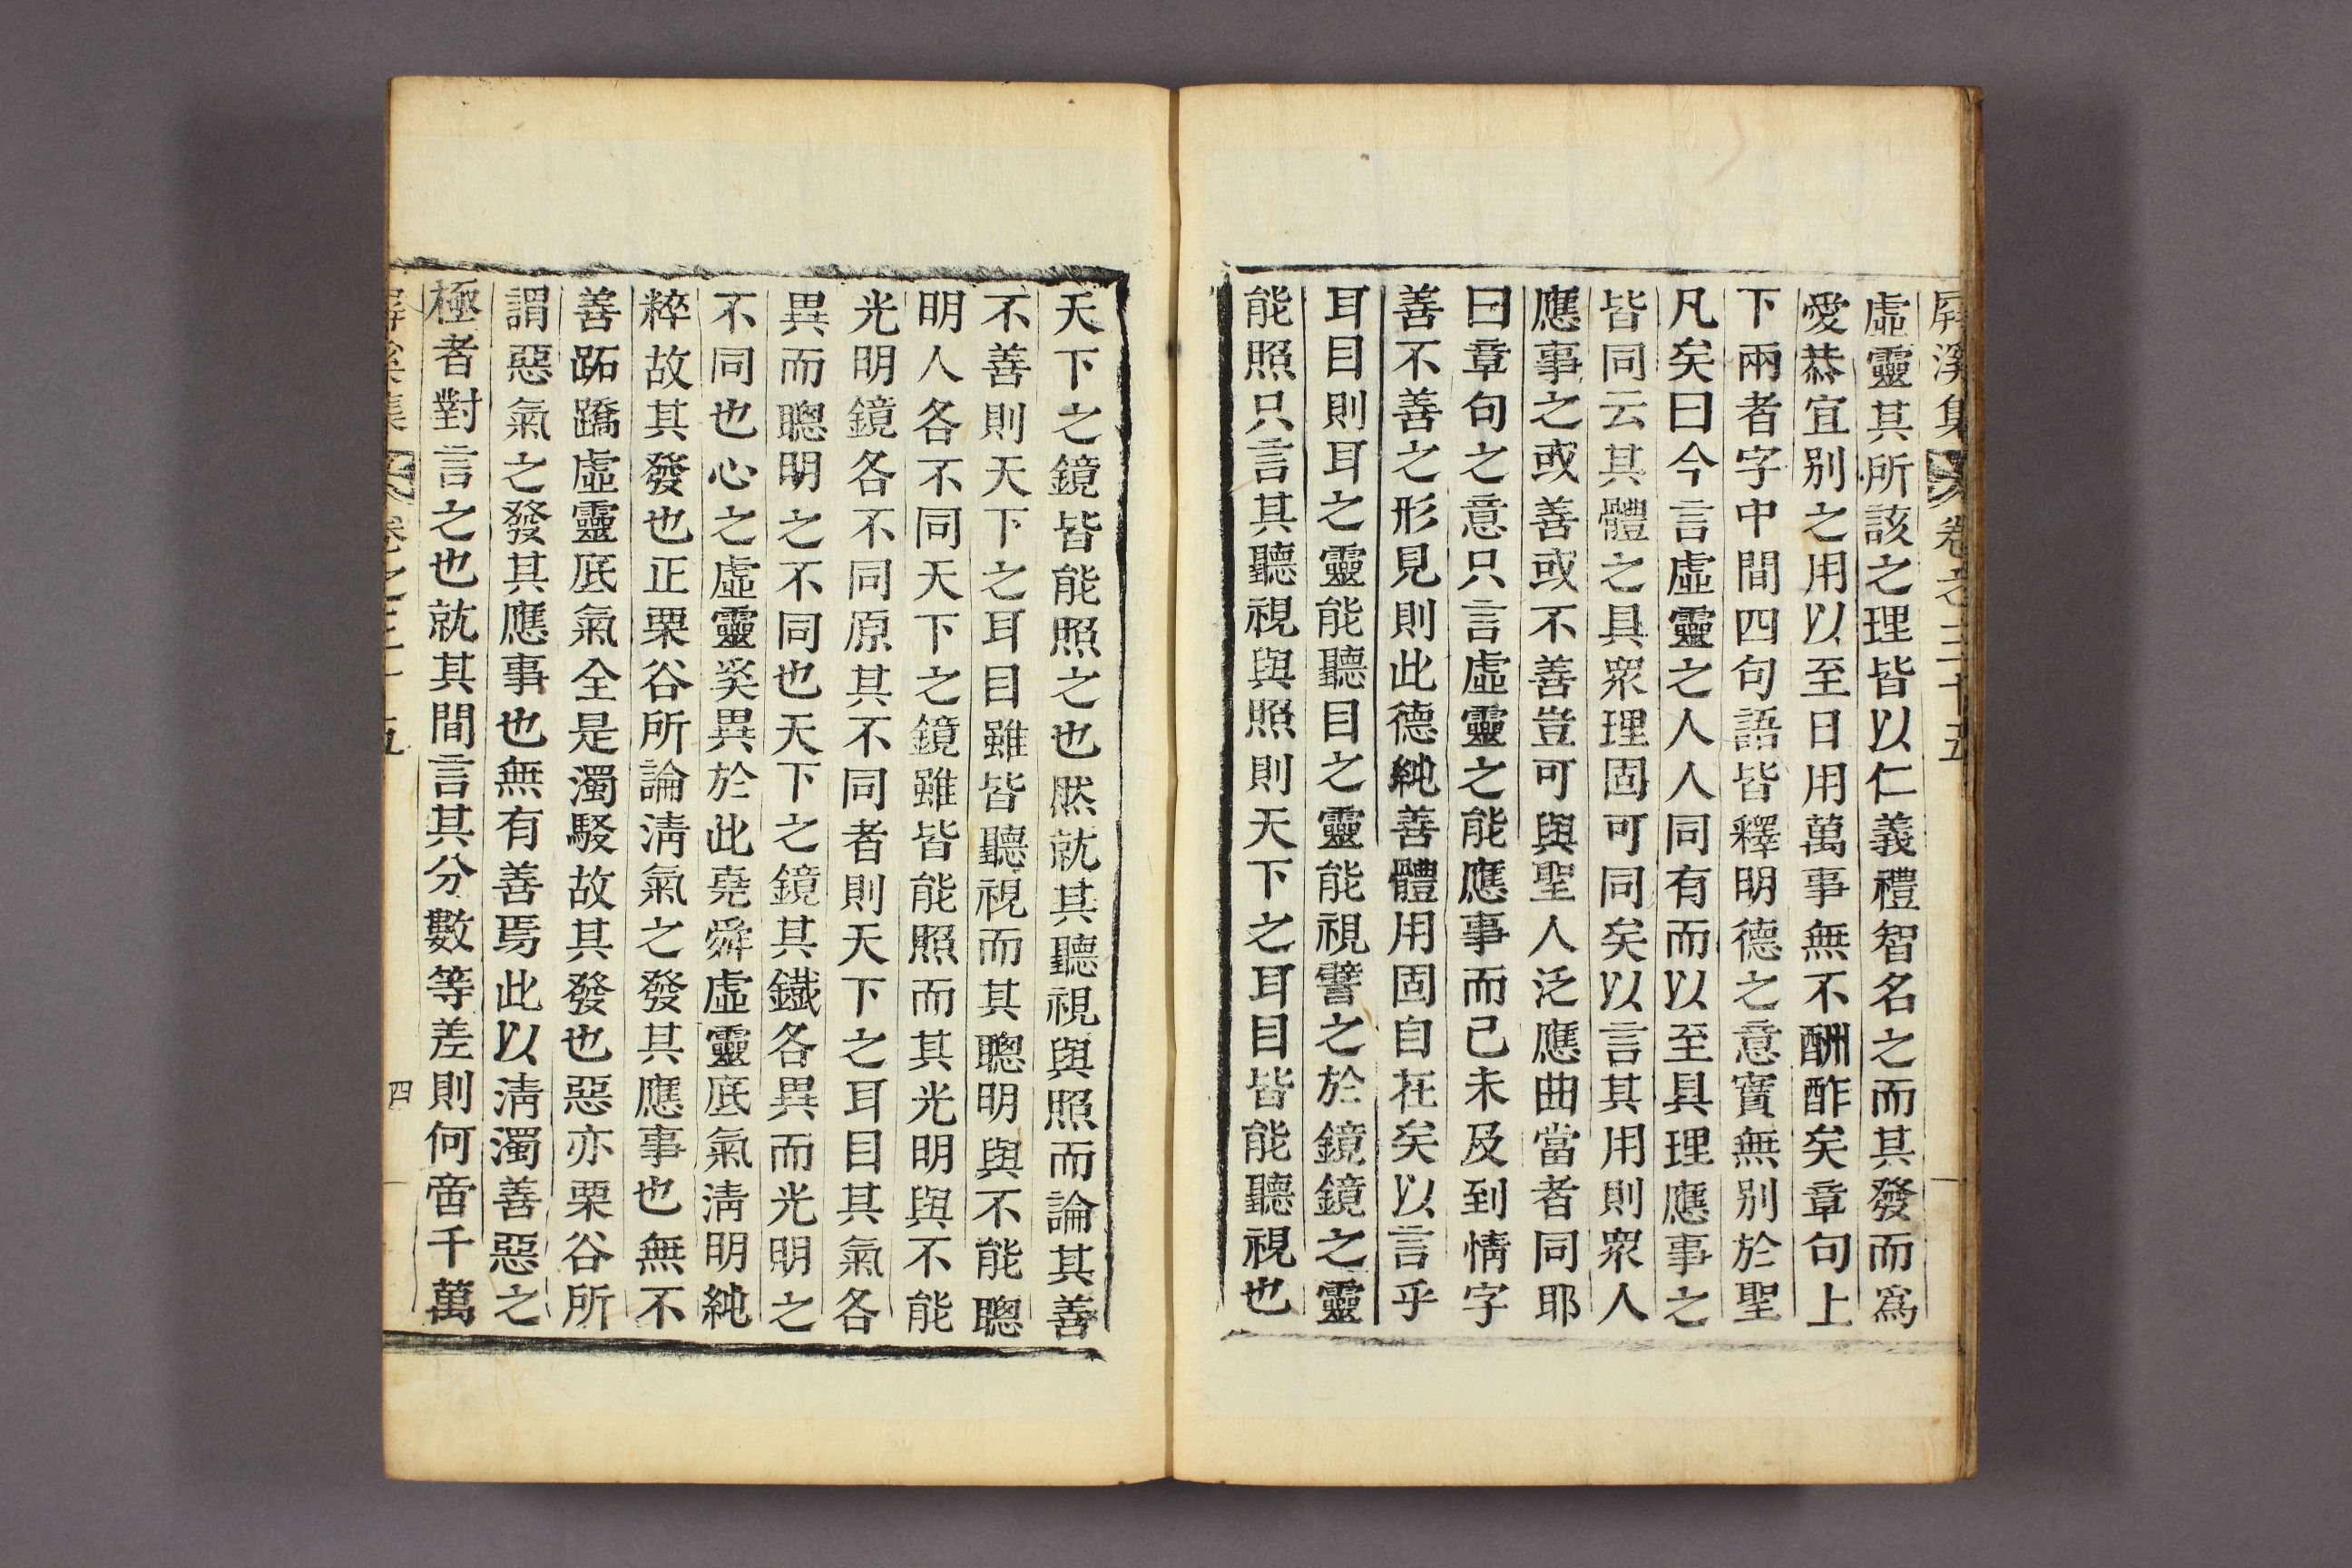 屛溪集 卷之三十五
虛靈其所該之理皆以仁義禮智名之而其發而爲
愛恭宜別之用以至日用萬事無不酬酢矣章句上
下兩者字中間四句語皆釋明德之意實無別於聖
凡矣曰今言虛靈之人人同有而以至具理應事之
皆同云其體之具衆理固可同矣以言其用則衆人
應事之或善或不善豈可與聖人泛應曲當者同耶
曰章句之意只言虛靈之能應事而已未及到情字
善不善之形見則此德純善體用固自在矣以言乎
耳目則耳之靈能聽目之靈能視譬之於鏡鏡之靈
能照只言其聽視與照則天下之耳目皆能聽視也
天下之鏡皆能照之也然就其聽視與照而論其善
不善則天下之耳目雖皆聽視而其聰明與不能聰
明人各不同天下之鏡雖皆能照而其光明與不能
光明鏡各不同原其不同者則天下之耳目其氣各
異而聰明之不同也天下之鏡其鐵各異而光明之
不同也心之虛靈奚異於此堯舜虛靈底氣淸明純
粹故其發也正栗谷所論淸氣之發其應事也無不
善跖蹻虛靈底氣全是濁駁故其發也惡亦栗谷所
謂惡氣之發其應事也無有善焉此以淸濁善惡之
極者對言之也就其間言其分數等差則何啻千萬
屛溪集 卷之三十五 四